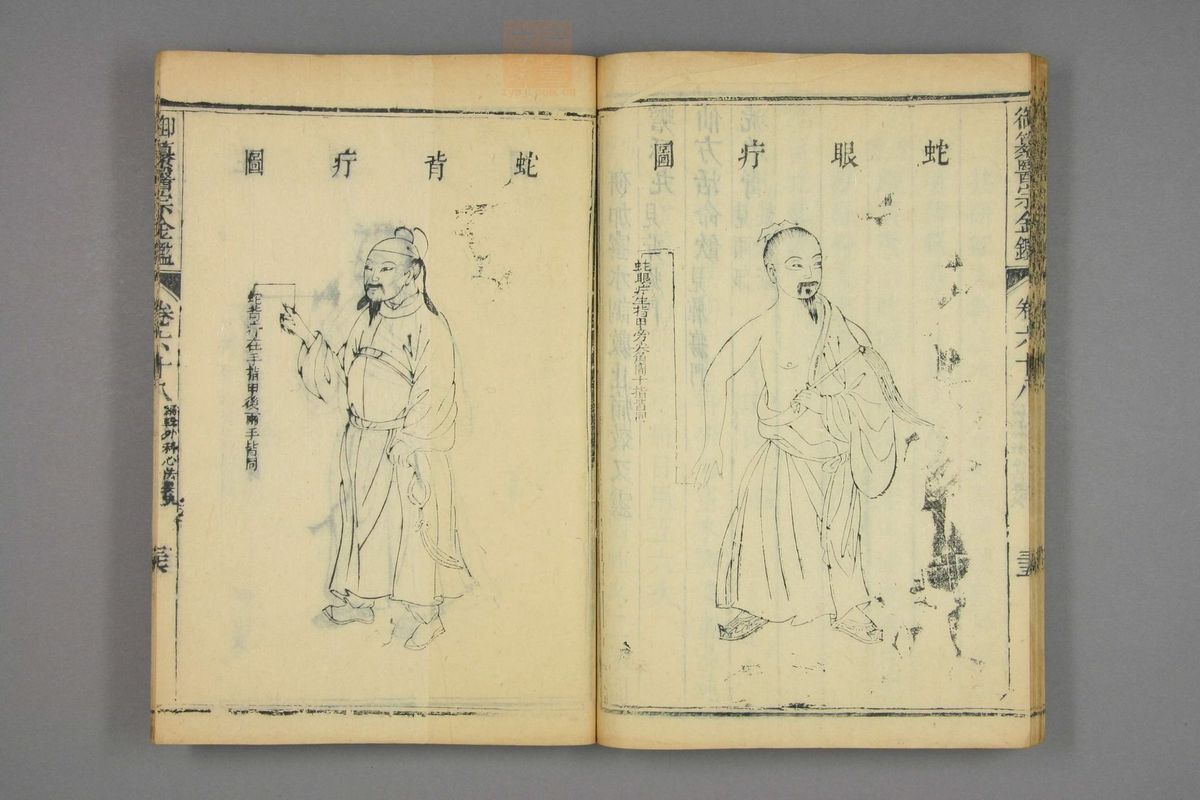 蛇眼疔圖
蛇眼疔生指甲旁尖角間十指皆同
御纂醫宗金鑑
卷六十八
蛇背疔圖
蛇背疔在手指甲後兩手皆同
御纂醫宗金鑑
卷六十八
編輯外科心法要訣